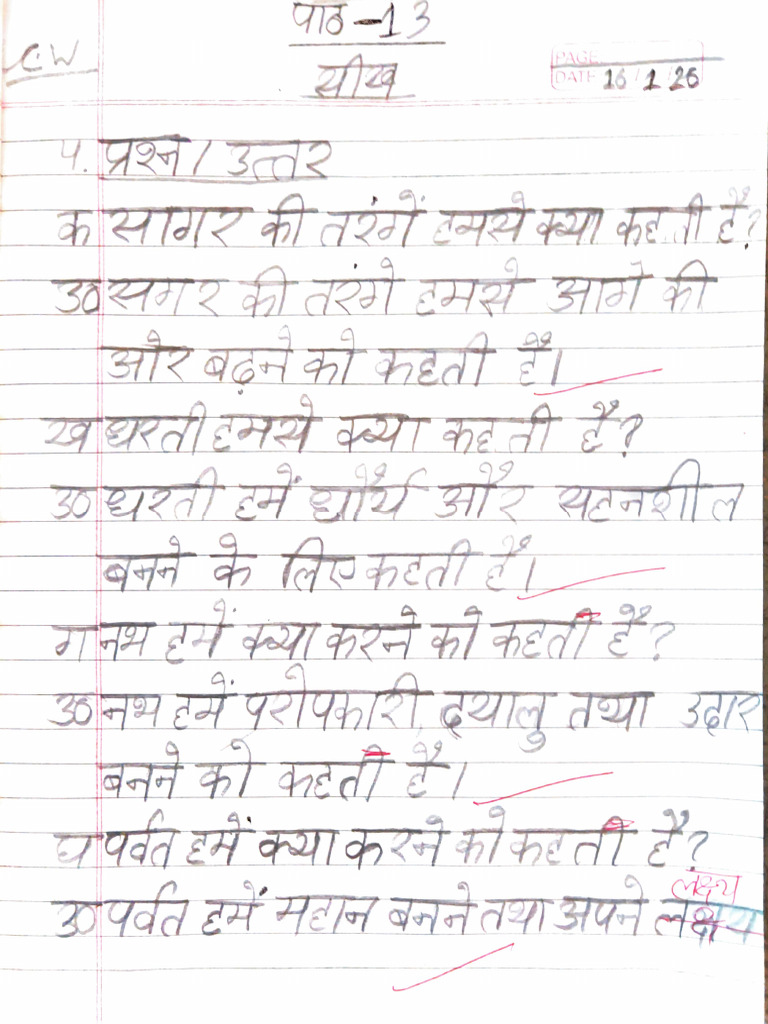 पाठ-13
C.W
सीख
PAGE
DATE 16/1/26
प. प्रश्न / उत्तर
क सागर की तरंगें हमसे क्या कहती हैं?
उ० सगर की तरंगे हमसे आगे की
और बढ़ने को कहती हैं।
ख धरती हमसे क्या कहती हैं?
उ० धरती हमें धौर्य और सहनशील
बनने के लिए कहती हैं।
ग नभ हमें क्या करने को कहती हैं?
उ० नभ हमें परोपकारी, दयालु तथा उदार
बनने को कहती हैं।
घ पर्वत हमें क्या करने को कहती हैं?
लक्ष्य
उ० पर्वत हमें महान बनने तथा अपने